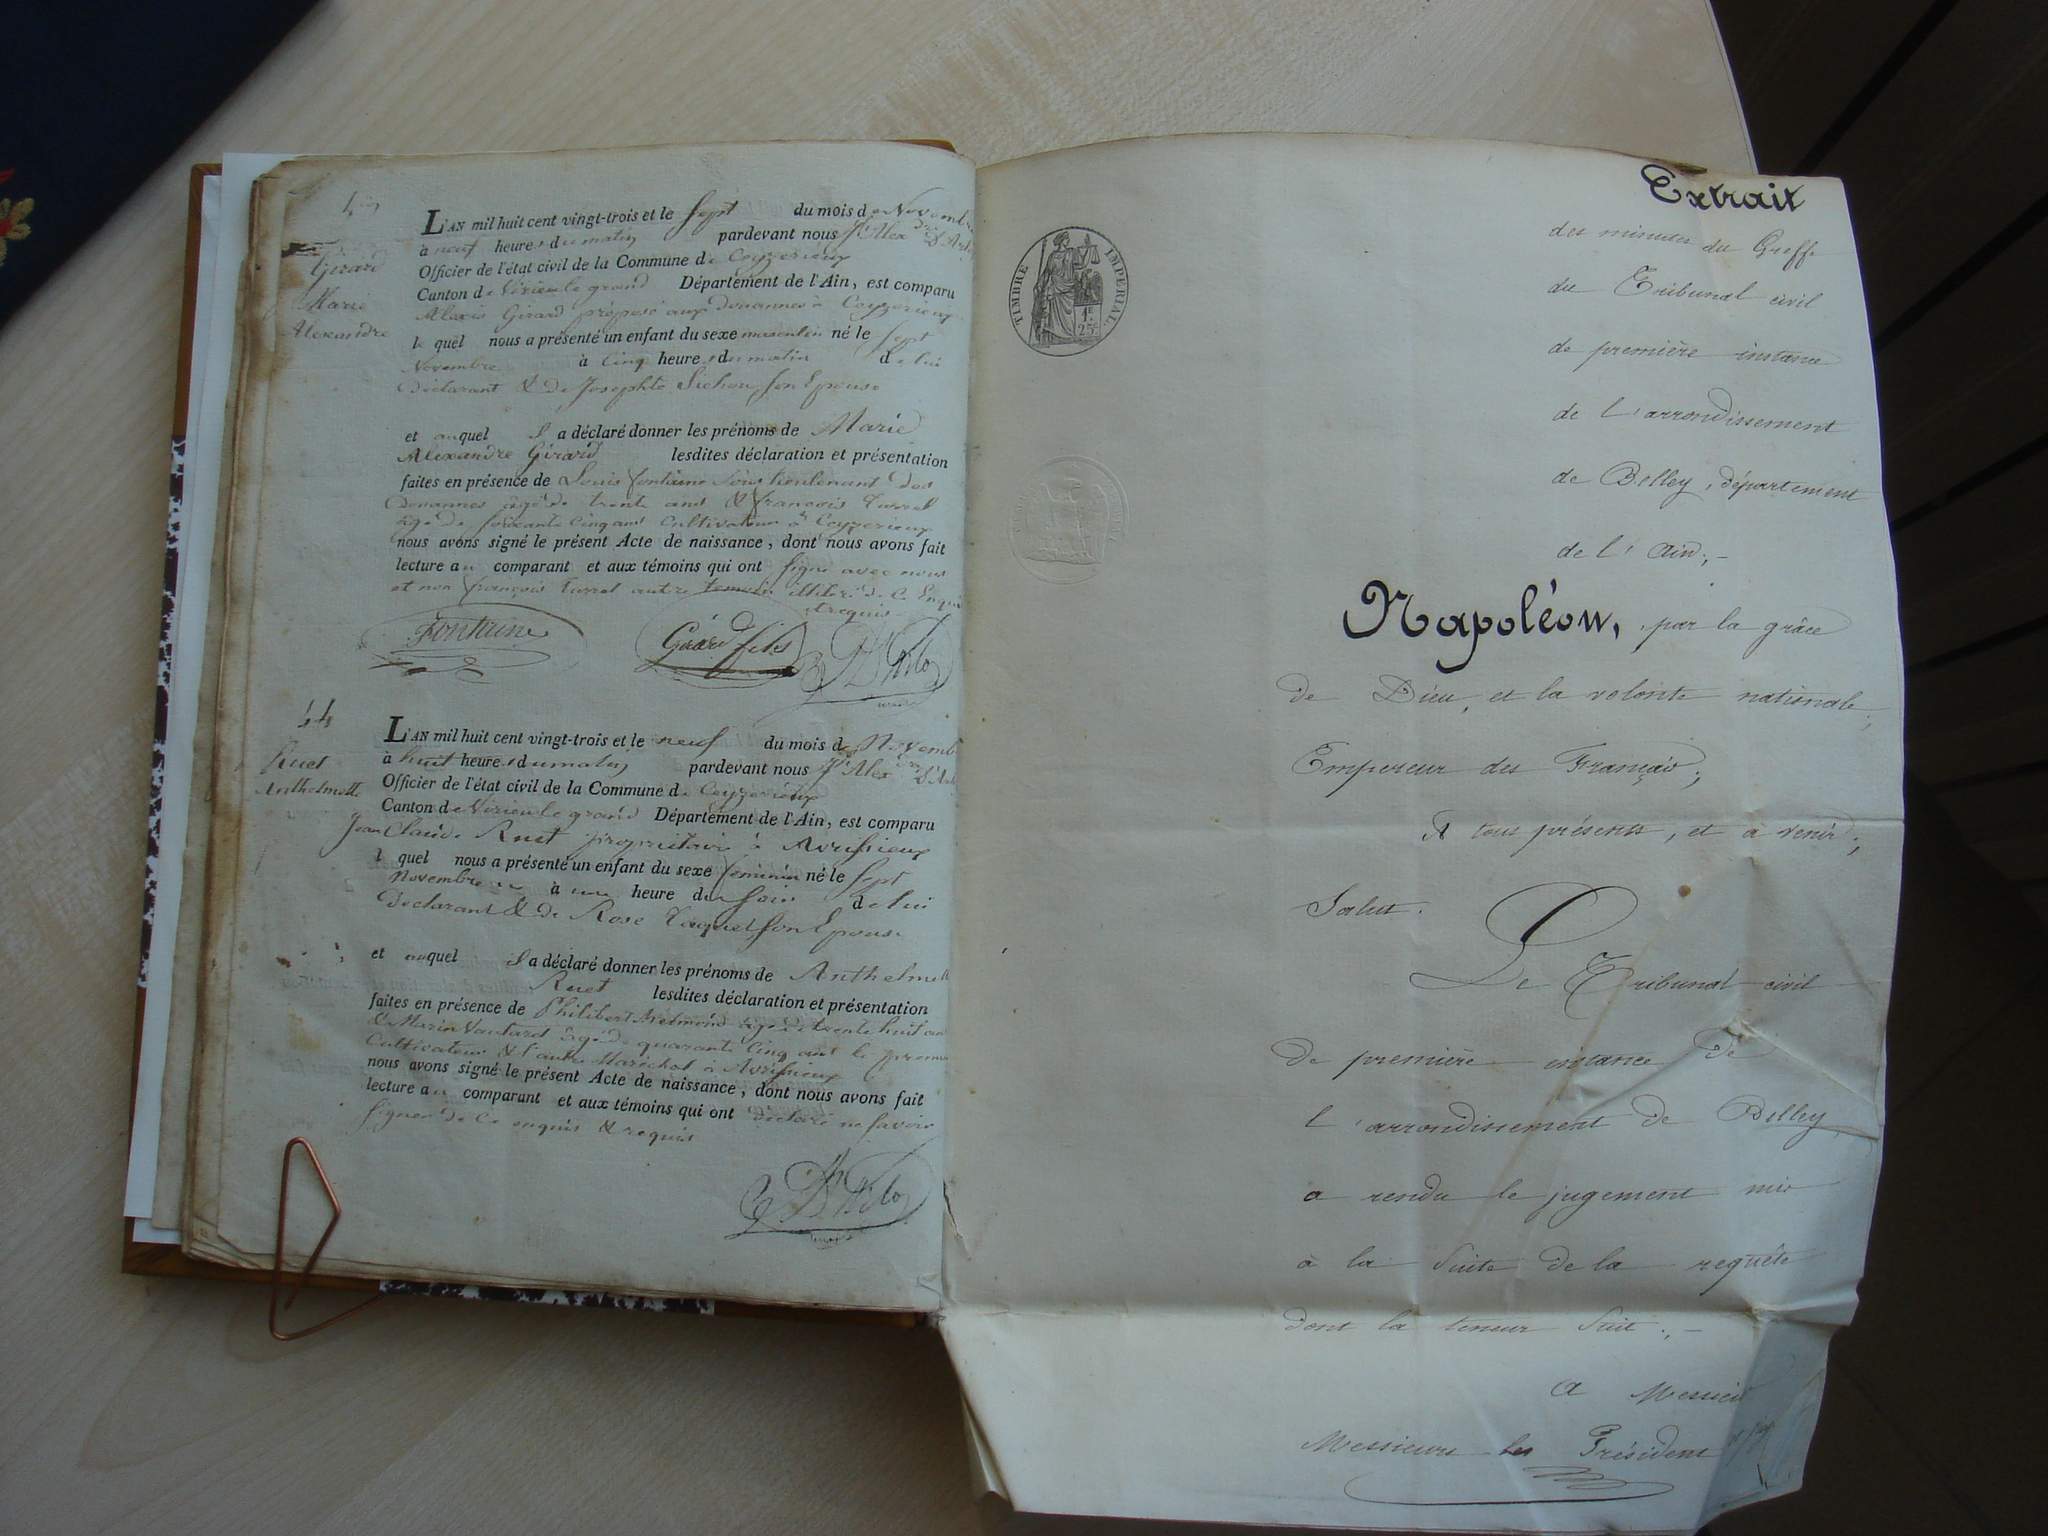 Girard
Marie
Alexandre
L'AN mil huit cent vingt-trois et le sept du mois de Novembre
à neuf heures du matin pardevant nous Alex
Officier de l'état civil de la Commune de Ceyzerieux
Canton de Virieu le grand Département de l'Ain, est comparu
Alexis Girard préposé aux Douannes à Ceyzerieux
le quel nous a présenté un enfant du sexe masculin né le sept
Novembre à cinq heures du matin de lui
Déclarant & de Josephte Sichon son Epouse
et auquel Il a déclaré donner les prénoms de Marie
Alexandre Girard lesdites déclaration et présentation
faites en présence de Louis fontaine Sous lieutenant des
Douannes âgé de trente ans & françois Turrel
âgé de soixante cinq ans Cultivateur à Ceyzerieux
nous avons signé le présent Acte de naissance, dont nous avons fait
lecture au comparant et aux témoins qui ont signé avec nous
et non françois Turrel autre temoin illitéré de ce Enquis
& requis
Fontaine Girard fils
44
Ruet
Anthelmette
L'AN mil huit cent vingt-trois et le neuf du mois de Novembre
à huit heures du matin pardevant nous Alex
Officier de l'état civil de la Commune de Ceyzerieux
Canton de Virieu le grand Département de l'Ain, est comparu
Jean Claude Ruet propriétaire à Avrissieux
l quel nous a présenté un enfant du sexe féminin né le sept
Novembre à une heure du soir de lui
Déclarant & de Rose son Epouse
et auquel Il a déclaré donner les prénoms de Anthelmette
Ruet lesdites déclaration et présentation
faites en présence de Philibert âgé de trente huit ans
& Marin Vautaret âgé de quarante cinq ans le premier
Cultivateur & l'autre Maréchal à Avrissieux
nous avons signé le présent Acte de naissance, dont nous avons fait
lecture au comparant et aux témoins qui ont déclaré ne savoir
signer de ce enquis & requis
TIMBRE IMPERIAL
1F
25c
Extrait
des minutes du Greffe
du Tribunal civil
de première instance
de l'arrondissement
de Belley, département
de l'Ain;-
Napoléon, par la grâce
de Dieu, et la volonté nationale,
Empereur des Français,
A tous présents, et à venir,
Salut.
Le Tribunal civil
de première instance de
l'arrondissement de Belley
a rendu le jugement mis
à la suite de la requête
dont la teneur suit:-
A Messieurs
Messieurs les Président